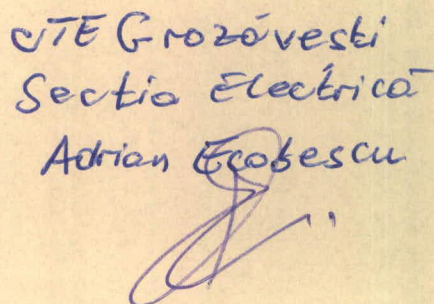 CTE Grozăveski
Sectia Electrică
Adrian Ecobescu